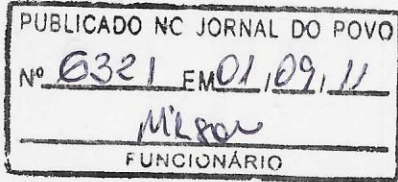 PUBLICADO NC JORNAL DO POVO
Nº 6321 EM 01/09/11
FUNCIONÁRIO